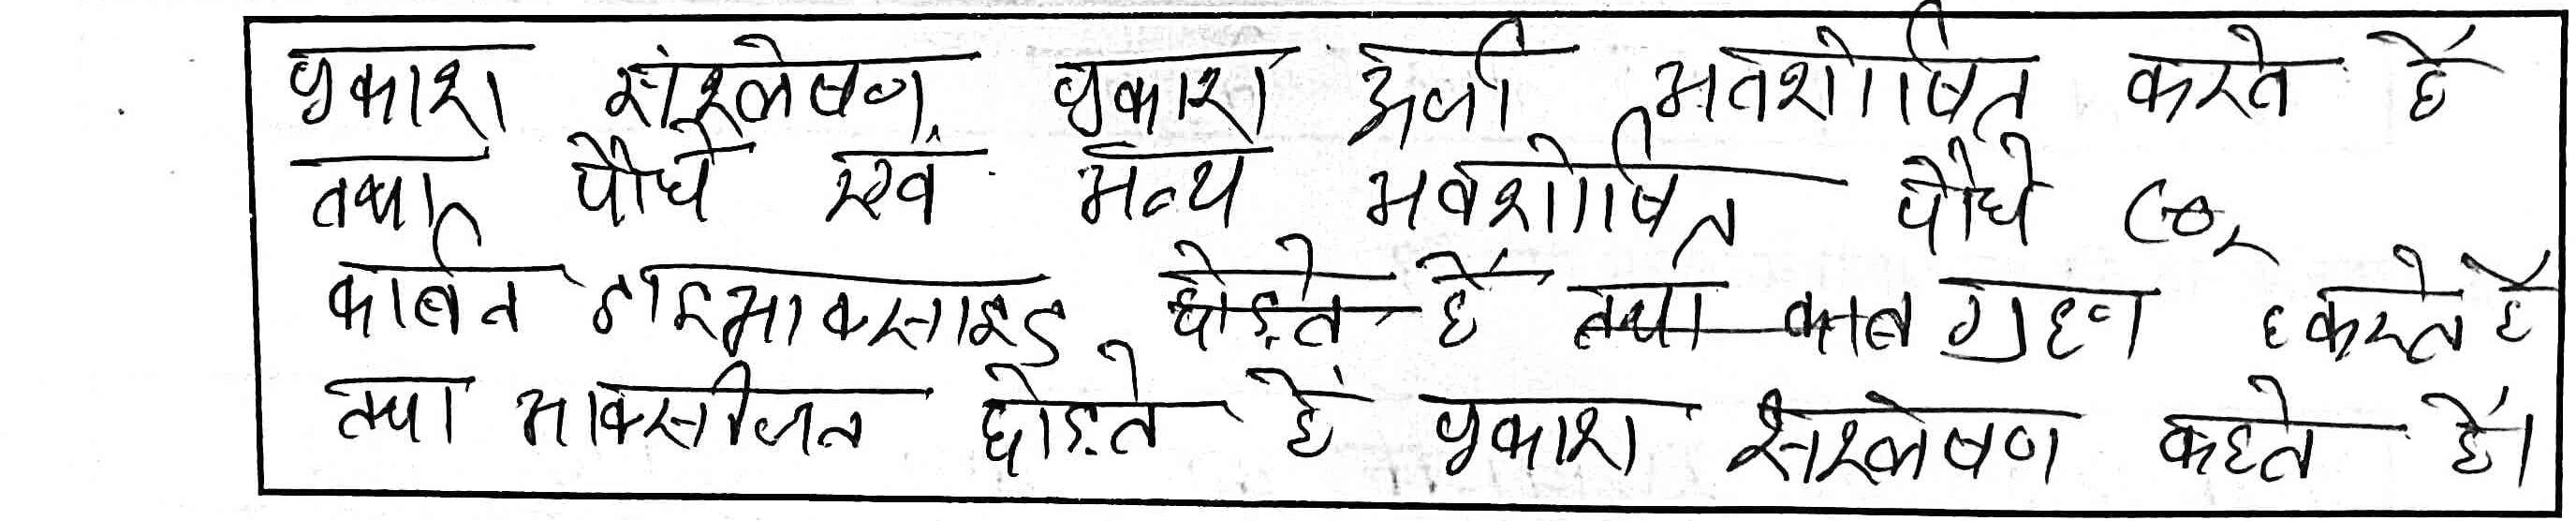 प्रकाश संश्लेषण प्रकाश ऊर्जा अवशोषित करते हैं
तथा पौधे एवं अन्य अवशोषित पौधे CO₂
कार्बन डाइआक्साइड छोड़ते हैं तथा काल ग्रहण करते है
तथा आक्सीजन छोड़ते हैं प्रकाश संश्लेषण कहते हैं।